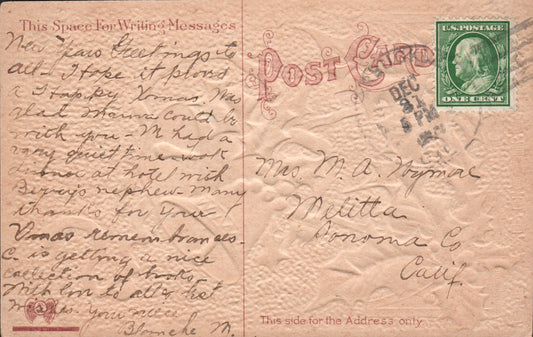 This Space For Writing Messages
New Years Greetings to
all - I hope it proved
a Happy Xmas. Was
glad Mama could be
with you - M had a
very quiet time - took
dinner at hotel with
nephew. Many
thanks for your
Xmas remembrances.
C. is getting a nice
collection of books
With love to all & best
wishes. Your niece
Blanche M.
POST CARD
U.S. POSTAGE
ONE CENT
DEC
31
PM
Mrs. M. A. Wymore
Melitta
Sonoma Co
Calif.
This side for the Address only